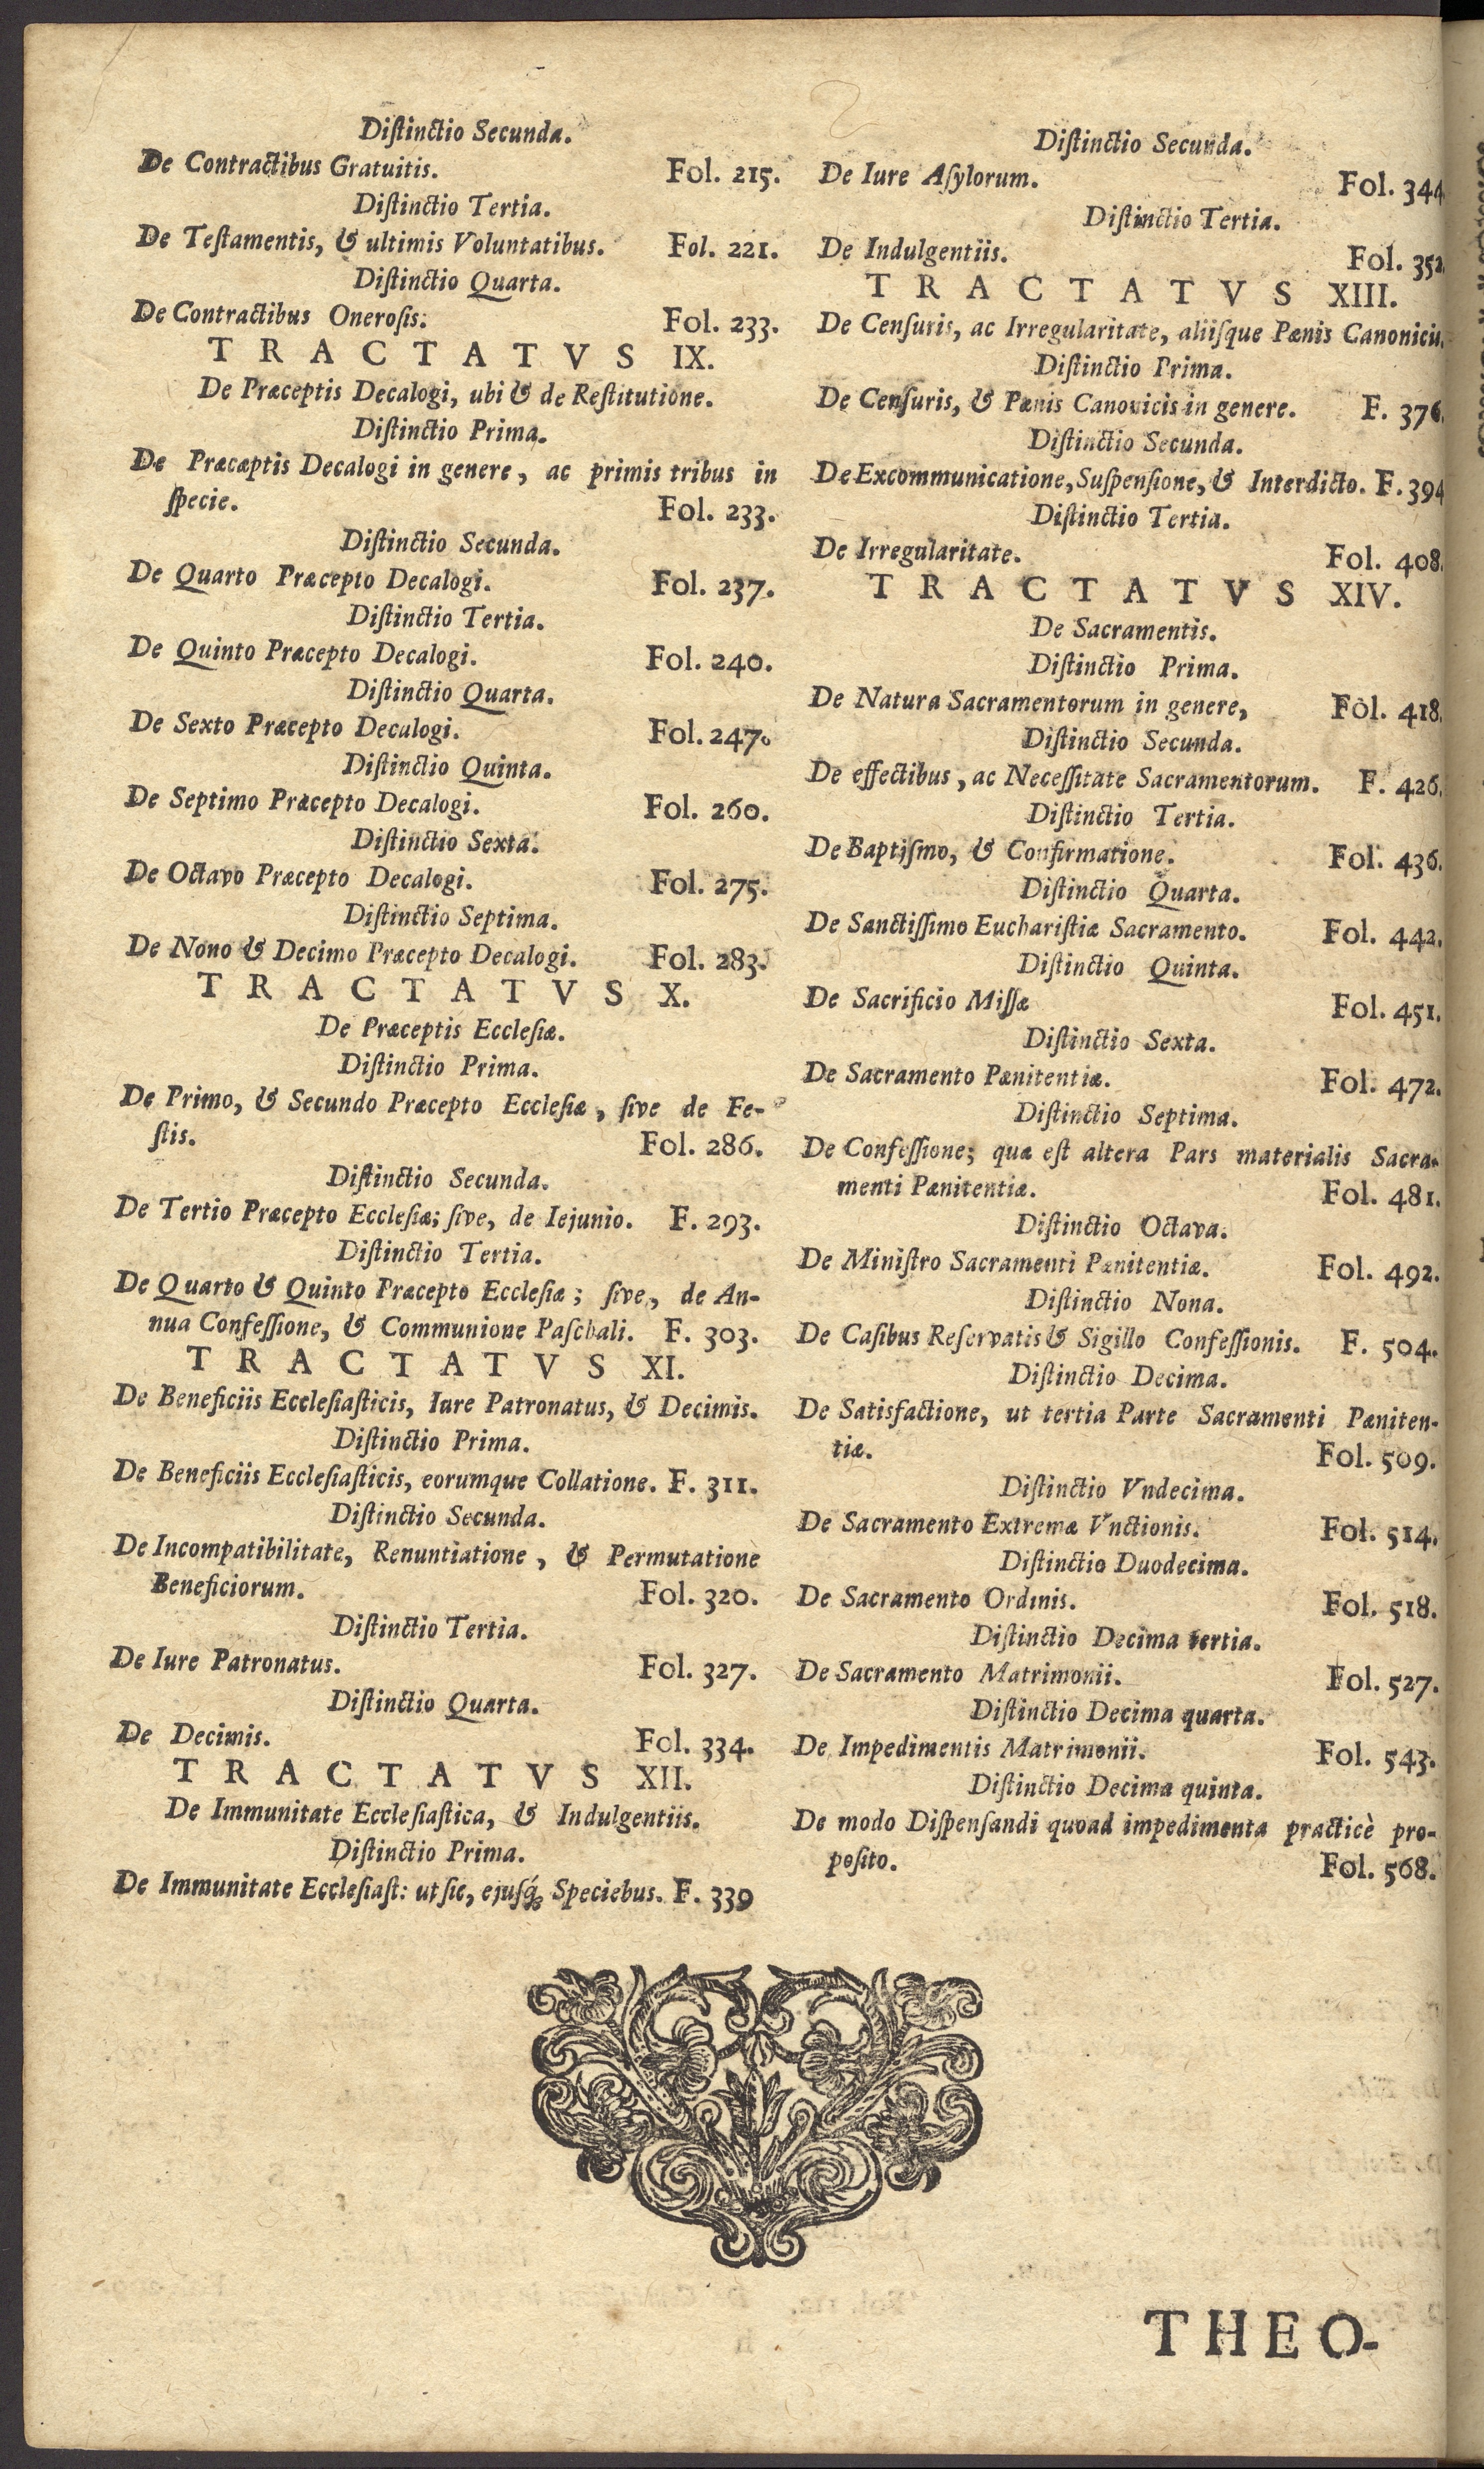 Diſtinctio Secunda.
De Contractibus Gratuitis. Fol. 215.
Diſtinctio Tertia.
De Teſtamentis, & ultimis Voluntatibus. Fol. 221.
Diſtinctio Quarta.
De Contractibus Oneroſis. Fol. 233.
TRACTATVS IX.
De Præceptis Decalogi, ubi & de Reſtitutione.
Diſtinctio Prima.
De Præcæptis Decalogi in genere, ac primis tribus in
ſpecie. Fol. 233.
Diſtinctio Secunda.
De Quarto Præcepto Decalogi. Fol. 237.
Diſtinctio Tertia.
De Quinto Præcepto Decalogi. Fol. 240.
Diſtinctio Quarta.
De Sexto Præcepto Decalogi. Fol. 247.
Diſtinctio Quinta.
De Septimo Præcepto Decalogi. Fol. 260.
Diſtinctio Sexta.
De Octavo Præcepto Decalogi. Fol. 275.
Diſtinctio Septima.
De Nono & Decimo Præcepto Decalogi. Fol. 283.
TRACTATVS X.
De Præceptis Eccleſiæ.
Diſtinctio Prima.
De Primo, & Secundo Præcepto Eccleſiæ, ſive de Fe-
ſtis. Fol. 286.
Diſtinctio Secunda.
De Tertio Præcepto Eccleſiæ; ſive, de Iejunio. F. 293.
Diſtinctio Tertia.
De Quarto & Quinto Præcepto Eccleſiæ; ſive, de An-
nua Confeſſione, & Communione Paſchali. F. 303.
TRACTATVS XI.
De Beneficiis Eccleſiaſticis, Iure Patronatus, & Decimis.
Diſtinctio Prima.
De Beneficiis Eccleſiaſticis, eorumque Collatione. F. 311.
Diſtinctio Secunda.
De Incompatibilitate, Renuntiatione, & Permutatione
Beneficiorum. Fol. 320.
Diſtinctio Tertia.
De Iure Patronatus. Fol. 327.
Diſtinctio Quarta.
De Decimis. Fol. 334.
TRACTATVS XII.
De Immunitate Eccleſiaſtica, & Indulgentiis.
Diſtinctio Prima.
De Immunitate Eccleſiaſt: ut ſic, ejuſq́; Speciebus. F. 339
Diſtinctio Secunda.
De Iure Aſylorum. Fol. 344
Diſtinctio Tertia.
De Indulgentiis. Fol. 352.
TRACTATVS XIII.
De Cenſuris, ac Irregularitate, aliiſque Pænis Canonicis.
Diſtinctio Prima.
De Cenſuris, & Pænis Canonicis in genere. F. 376.
Diſtinctio Secunda.
De Excommunicatione, Suſpenſione, & Interdicto. F. 394
Diſtinctio Tertia.
De Irregularitate. Fol. 408.
TRACTATVS XIV.
De Sacramentis.
Diſtinctio Prima.
De Natura Sacramentorum in genere, Fol. 418.
Diſtinctio Secunda.
De effectibus, ac Neceſſitate Sacramentorum. F. 426.
Diſtinctio Tertia.
De Baptiſmo, & Confirmatione. Fol. 436.
Diſtinctio Quarta.
De Sanctiſſimo Euchariſtiæ Sacramento. Fol. 442.
Diſtinctio Quinta.
De Sacrificio Miſſæ Fol. 451.
Diſtinctio Sexta.
De Sacramento Pænitentiæ. Fol. 472.
Diſtinctio Septima.
De Confeſſione; quæ eſt altera Pars materialis Sacra-
menti Pænitentiæ. Fol. 481.
Diſtinctio Octava.
De Miniſtro Sacramenti Pænitentiæ. Fol. 492.
Diſtinctio Nona.
De Caſibus Reſervatis & Sigillo Confeſſionis. F. 504.
Diſtinctio Decima.
De Satisfactione, ut tertia Parte Sacramenti Pæniten-
tiæ. Fol. 509.
Diſtinctio Vndecima.
De Sacramento Extremæ Vnctionis. Fol. 514.
Diſtinctio Duodecima.
De Sacramento Ordinis. Fol. 518.
Diſtinctio Decima tertia.
De Sacramento Matrimonii. Fol. 527.
Diſtinctio Decima quarta.
De Impedimentis Matrimonii. Fol. 543.
Diſtinctio Decima quinta.
De modo Diſpenſandi quoad impedimenta practicè pro-
poſito. Fol. 568.
THEO-